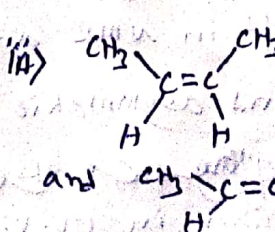 CH3 CH
C=C
H H
and CH3 C=
H